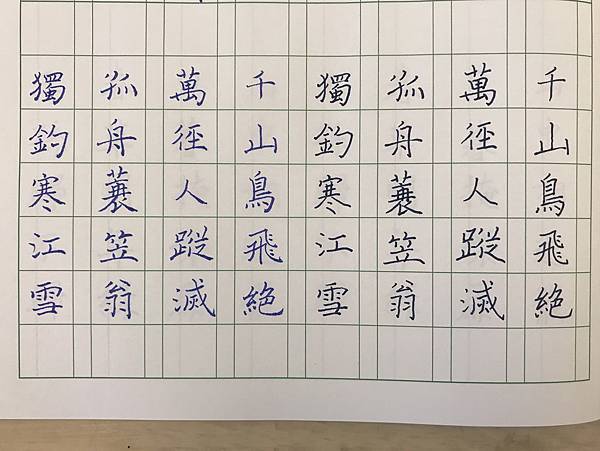 千山鳥飛絕
萬徑人蹤滅
孤舟蓑笠翁
獨釣寒江雪
千山鳥飛絕
萬徑人蹤滅
孤舟蓑笠翁
獨釣寒江雪